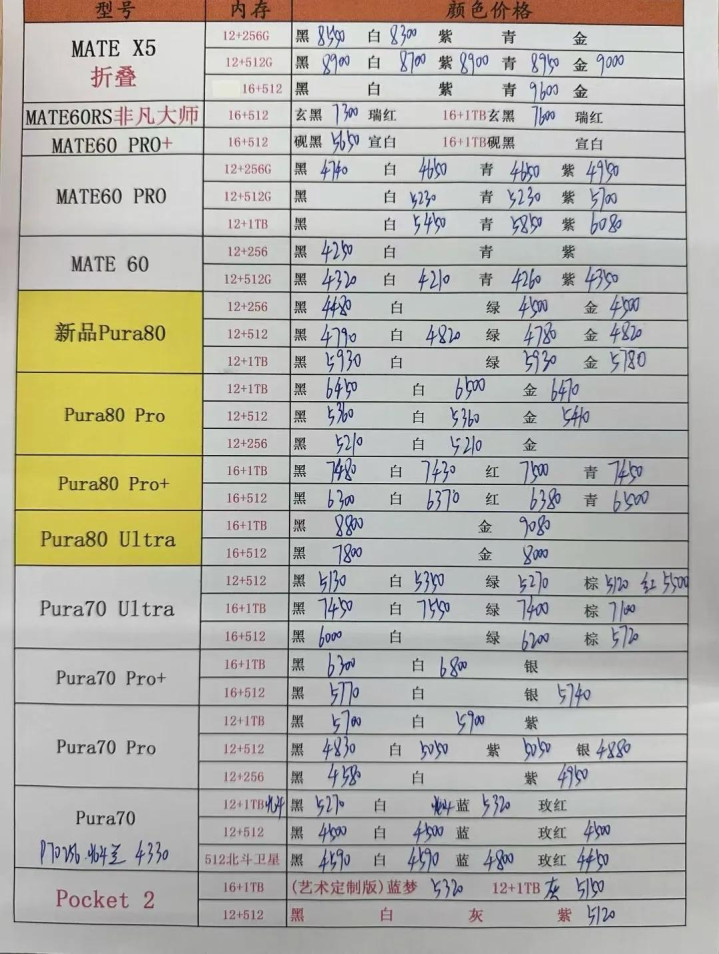 型号 内存 颜色价格
MATE X5 折叠 12+256G 黑 8550 白 8300 紫 青 金
12+512G 黑 8900 白 8700 紫 8900 青 8950 金 9000
16+512 黑 白 紫 青 9600 金
MATE60RS非凡大师 16+512 玄黑 7300 瑞红 16+1TB玄黑 7600 瑞红
MATE60 PRO+ 16+512 砚黑 5650 宣白 16+1TB砚黑 宣白
MATE60 PRO 12+256G 黑 4740 白 4650 青 4650 紫 4950
12+512G 黑 白 5230 青 5230 紫 5700
12+1TB 黑 白 5450 青 5850 紫 6080
MATE 60 12+256 黑 4250 白 青 紫
12+512G 黑 4320 白 4210 青 4260 紫 4350
新品Pura80 12+256 黑 4480 白 绿 4500 金 4500
12+512 黑 4790 白 4820 绿 4780 金 4820
12+1TB 黑 5930 白 绿 5930 金 5780
Pura80 Pro 12+1TB 黑 6450 白 6500 金 6470
12+512 黑 5360 白 5360 金 5410
12+256 黑 5210 白 5210 金
Pura80 Pro+ 16+1TB 黑 7480 白 7430 红 7500 青 7450
16+512 黑 6300 白 6370 红 6380 青 6500
Pura80 Ultra 16+1TB 黑 8800 金 9080
16+512 黑 7800 金 8000
Pura70 Ultra 12+512 黑 5130 白 5350 绿 5270 棕 5120 红 5500
16+1TB 黑 7450 白 7550 绿 7400 棕 7100
16+512 黑 6000 白 绿 6200 棕 5720
Pura70 Pro+ 16+1TB 黑 6300 白 6800 银
16+512 黑 5770 白 银 5740
Pura70 Pro 12+1TB 黑 5700 白 5900 紫
12+512 黑 4830 白 5050 紫 5050 银 4880
12+256 黑 4580 白 紫 4950
Pura70 12+1TB北斗 黑 5270 白 北斗蓝 5320 玫红
12+512 黑 4500 白 4500 蓝 玫红 4500
P70 256 北斗 4330 512北斗卫星 黑 4590 白 4590 蓝 4800 玫红 4450
Pocket 2 16+1TB (艺术定制版)蓝梦 5320 12+1TB 灰 5150
12+512 黑 白 灰 紫 5120